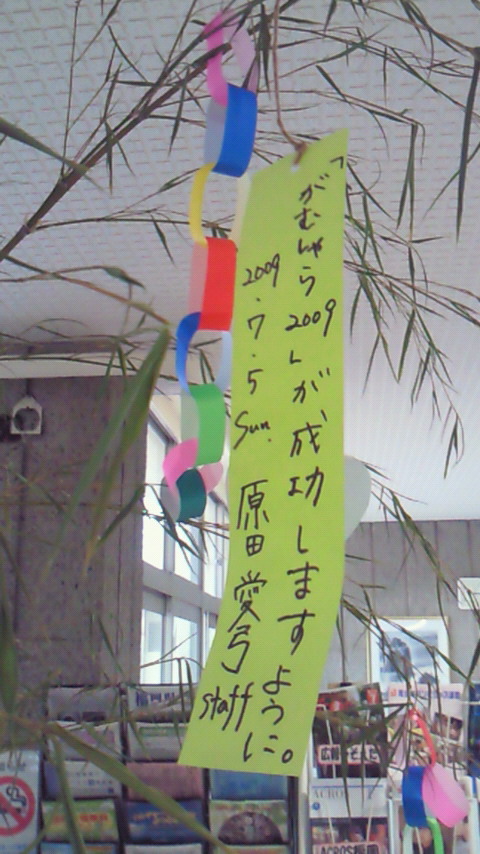 「がむしゃら2009」が、成功しますように。
2009.7.5 Sun. 原田愛弓 staff
ACROS
ACROS福岡